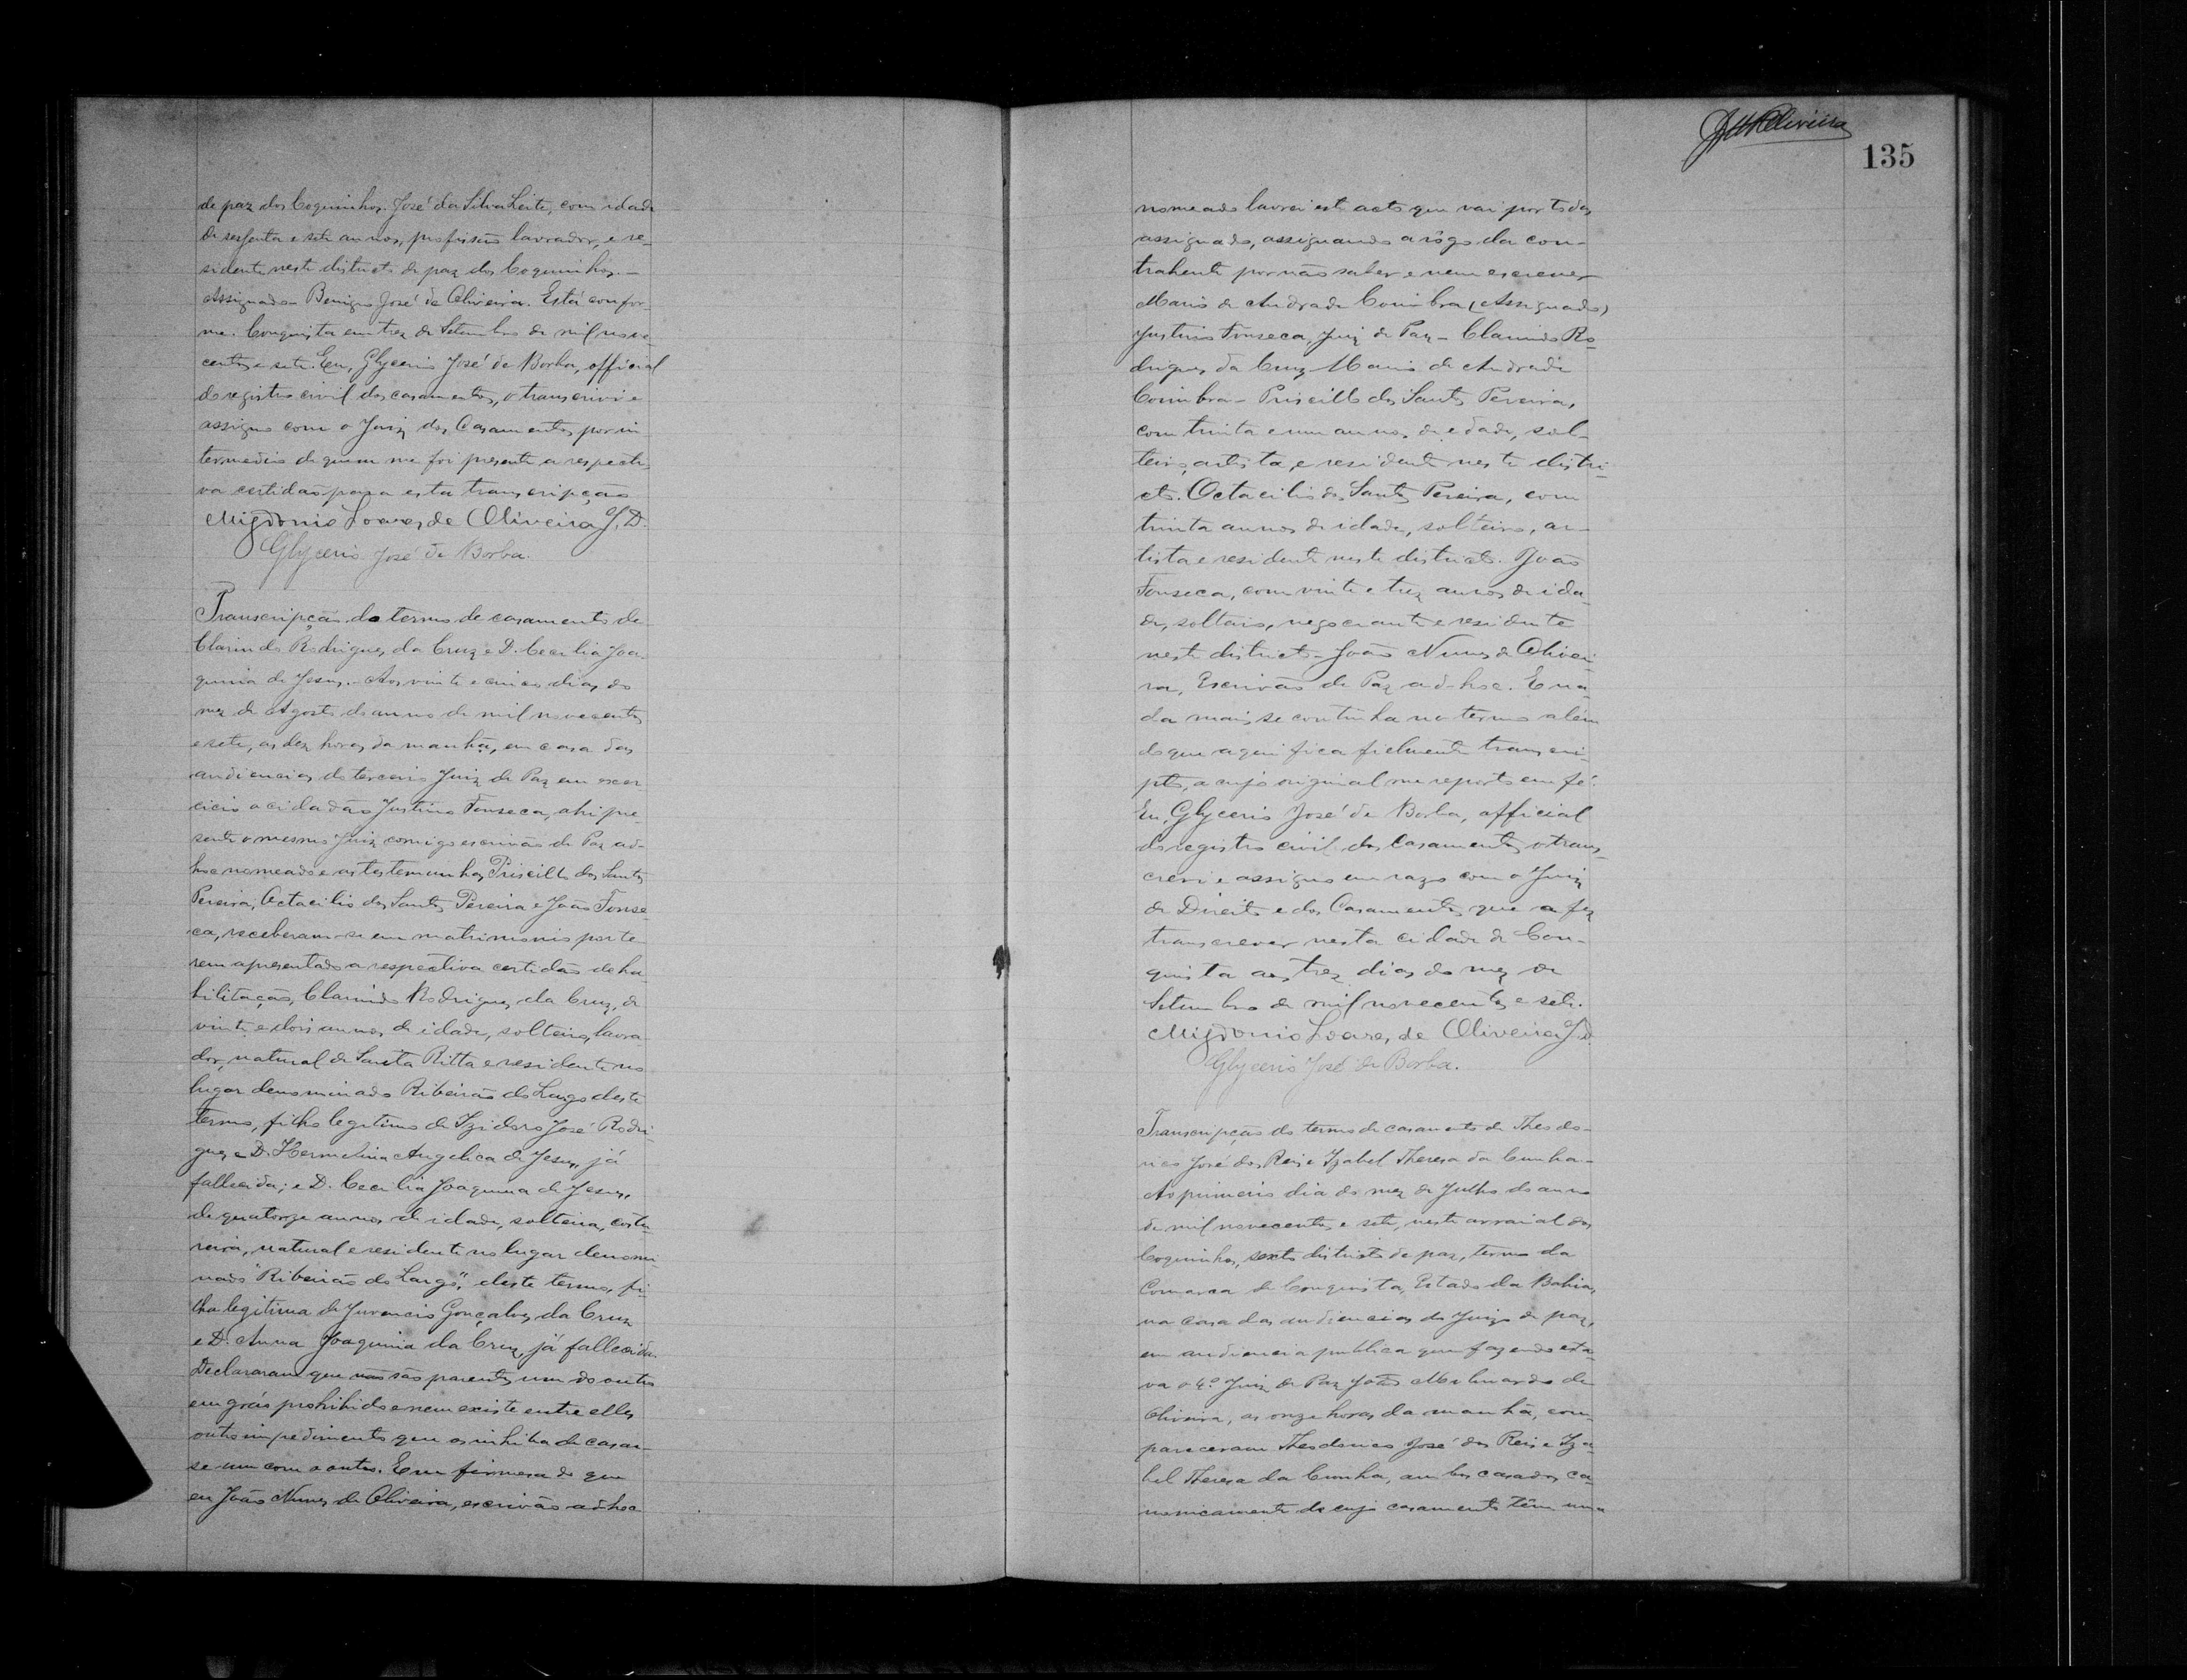 de paz dos Coquinhos. José da Silva Leite, com idade
de sessenta e sete annos, profissão lavrador, e re-
sidente neste districto de paz dos Coquinhos.-
Assignado- Benigno José de Oliveira. Está confor-
me. Conquista em trez de Setembro de mil nove-
centos e sete. Eu, Glycerio José de Borba, official
do registro civil dos casamentos, o transcrivi e
assigno com o Juiz dos Casamentos por in
termedio de quem me foi presente a respecti
va certidão para esta transcripção
Migdonio Soares de Oliveira J. D.
Glycerio José de Borba.
Transcripção do termo de casamento de
Clarindo Rodrigues da Cruz e D. Cecilia Joa-
quina de Jesus.- Aos vinte e cinco dias do
mez de Agosto do anno de mil novecentos
e sete, as dez horas da manhã, em casa das
audiencias do terceiro Juiz de Paz em exer
cicio o cidadão Justino Fonseca, ahi pre-
sente o mesmo Juiz comigo escrivão de Paz ad-
hoc nomeado e as testemunhas Priscillo dos Santos
Pereira, Octacilio dos Santos Pereira e João Fonse-
ca, receberam-se em matrimonio por te
rem apresentado a respectiva certidão de ha
bilitação, Clarindo Rodrigues da Cruz, de
vinte e dois annos de idade, solteiro, lavra-
dor, natural de Santa Ritta e residente no
lugar denominado Ribeirão do Largo deste
termo, filho legitimo de Izidoro José Rodri-
gues e D. Hermelina Angelica de Jesus, já
fallecida; e D. Cecilia Joaquina de Jesus,
de quatorze annos de idade, solteira, costu
reira, natural e residente no lugar denomi
nado "Ribeirão do Largo", deste termo, fi-
lha legitima de Juvencio Gonçalves da Cruz
e D. Anna Joaquina da Cruz, já fallecida.
Declararam que não são parentes um do outro
em gráo prohibido e nem existe entre elles
outro impedimento que os inhiba de casar-
se um com o outro. E em firmesa do que
eu João Nunes de Oliveira, escrivão adhoc
135
nomeado lavrei este acto que vai por todos
assignado, assignando a rôgo da con-
trahente por não saber e nem escrever
Mario de Andrade Coimbra (Assignados)
Justino Fonseca, Juiz de Paz - Clarindo Ro-
drigues da Cruz Mario de Andrade
Coimbra - Priscillo dos Santos Pereira,
com trinta e um annos, de edade, sol-
teiro, artista, e residente neste distri-
cto. Octacilio dos Santos Pereira, com
trinta annos de idade, solteiro, ar-
tista e residente neste districto. João
Fonseca, com vinte e trez annos de ida-
de, solteiro, negociante e residente
neste districto - João Nunes de Olivei-
ra, Escrivão de Paz ad-hoc. E na-
da mais se continha no termo alem
do que aqui fica fielmente transcri-
pto, a cujo original me reporto em fé.
Eu, Glycerio José de Borba, official
do registro civil dos Casamentos o trans-
crevi e assigno em razo com o Juiz
de Direito e dos Casamentos que a fez
transcrever nesta cidade de Con-
quista aos trez dias do mez de
Setembro de mil novecentos e sete.
Migdonio Soares de Oliveira J. D.
Glycerio José de Borba.
Transcripção do termo de casamento de Theodo-
rico José dos Reis e Izabel Theresa da Cunha-
Ao primeiro dia do mez de Julho do anno
de mil novecentos e sete, neste arraial dos
Coquinhos, sexto districto de paz, termo da
Comarca de Conquista, Estado da Bahia,
na casa das audiencias do Juizo de paz,
em audiencia publica que fazendo esta-
va o 4º Juiz de Paz João
Oliveira, as onze horas da manhã, com-
pareceram Theodorico José dos Reis e Iza-
bel Theresa da Cunha, ambos casados ca-
nonicamente de cujo casamento têm uma